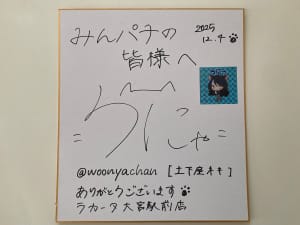 みんパチの
2025
12.4
皆様へ
うにゃ
@woonyachan [土下座オキ]
ありがとうございます
ラカータ 大宮駅前店